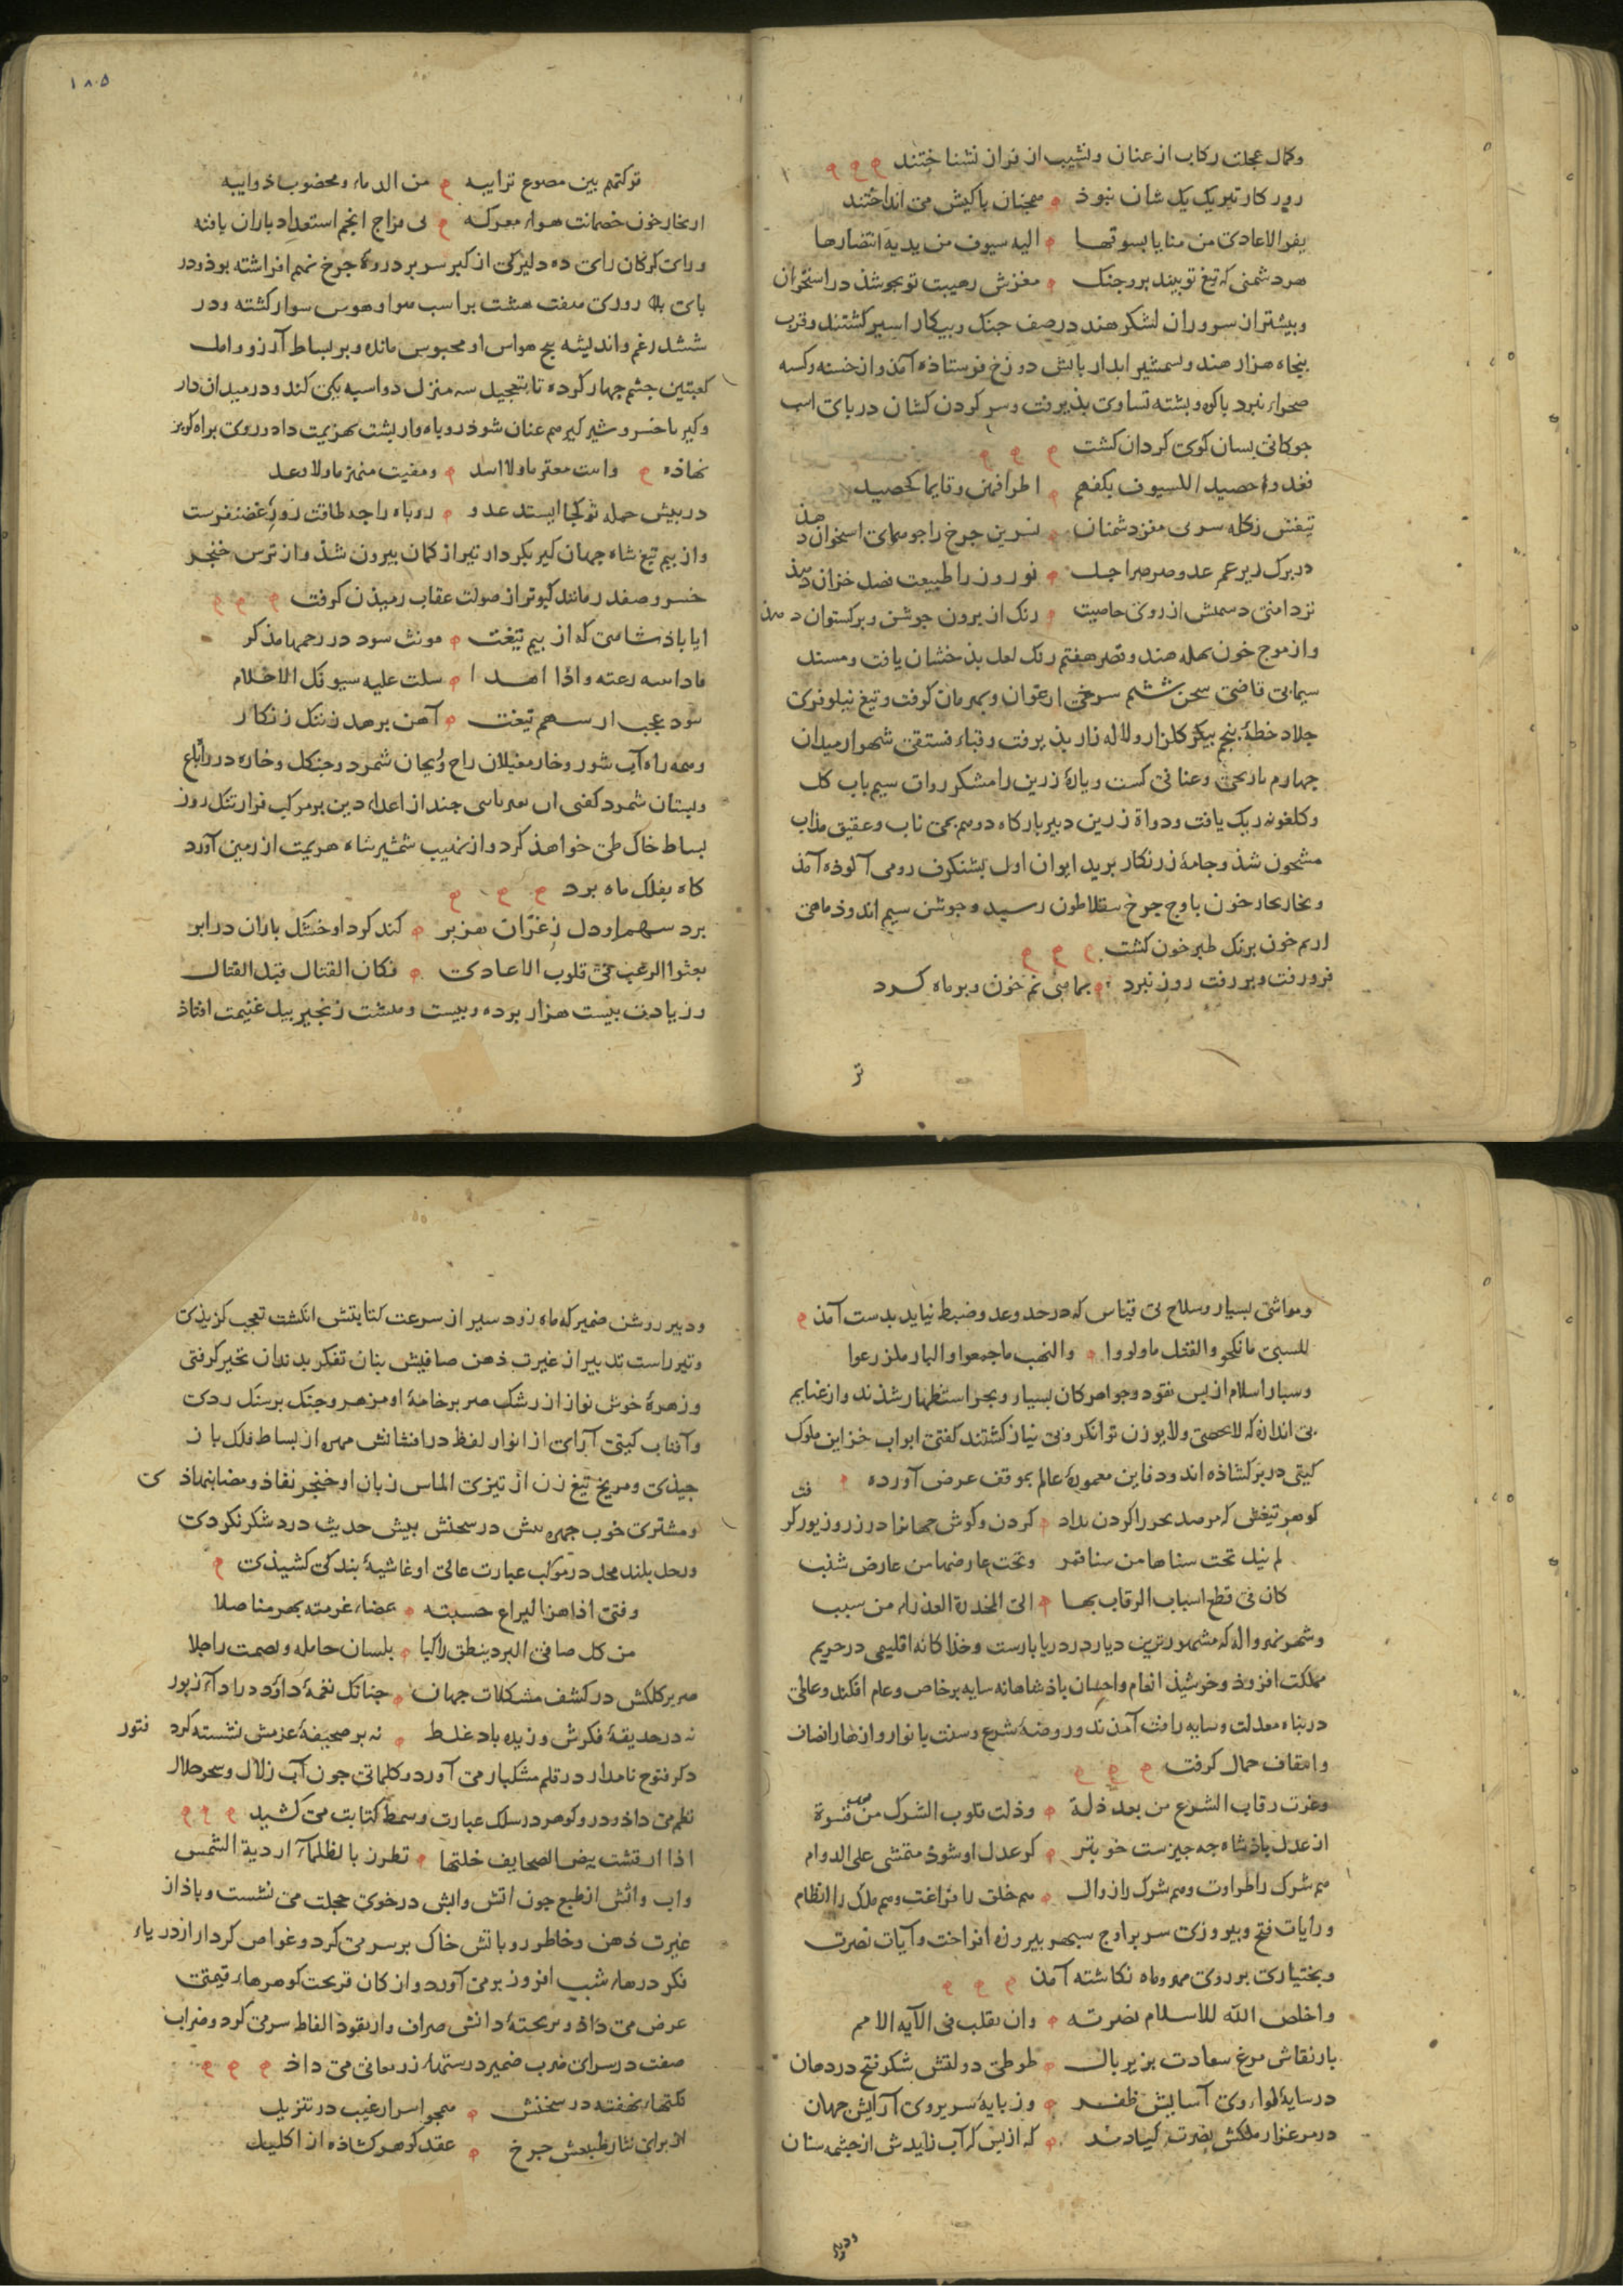 وکمال عجلت رکاب از عنان و نشیب از فراز نشناختند
روز کار تیر یک یک شان نبوذ همچنان با کیش می انداختند
یفر الاعادی من منایا بسوقها الیه سیوف من یدیه انتضارها
هر دشمنی که تیغ تو بیند بروز جنک مغزش ز هیبت تو بجوشذ در استخوان
و بیشتر از سروران لشکر هند در صف جنک و پیکار اسیر کشتند و قرب
بنجاه هزار هند و بشمشیر ابدار باتش دوزخ فرستاذه آمذ و از خسته و کسه
صحراء نبرد با کوه و بشته تساوی بذیرفت و سر کردن کشان در بای اسب
جوکانی بسان کوی کردان کشت
اطرافهن وقایما کحصید
تیغش ز کله سر مغز دشمنان نسرین جرخ را جو همای استخوان دهذ
در برک ریز عمر عدو صرصر اجل نوروز را طبیعت فصل خزان دهذ
رنک از برون جوشن و برکستوان دهذ
و از موج خون بهله هند و قصر هفتم رنک لعل بذخشان یافت و مسند
سیمابی قاضی صحن ششم سرخی ارغوان و بهرمان کرفت و تیغ نیلوفری
جلاد خطهٔ پنجم بیکر کلزار و لاله زار بذیرفت و قباء فستقی شهسوار میدان
جهارم نارنجی و عنابی کست و یارهٔ زرین رامشکر رواق سیم باب کل
و کلغونه رنک یافت و دواة زرین دبیر بارکاه دوم بمی ناب و عقیق مذاب
مشحون شذ و جامهٔ زرنکار برید ایوان اول بشنکرف رومی آلوذه آمذ
و بخار بحار خون باوج جرخ سقلاطون رسید و جوشن سیم اندوذ ماهی
از نم خون برنک طبرخون کشت
فرو رفت و بر رفت روز نبرد بماهی نم خون و بر ماه کرد
تر
۱۸۵
ترکتهم بین مصروع ترایبه من الدماء و مخضوب ذوایبه
از بخار خون خصمانت هواء معرکه فی مزاج انجم استعداد باران یافته
و رای کرکان رای ده دلیر کی از کبر سر بر دروهٔ جرخ نهم افراشته بوذ و در
بای بلا روزی صفت هشت بر اسب هوا و هوس سوار کشته و در
ششدر غم و اندیشه پنج حواس او محبوس مانده و بر بساط آرزو و امل
کعبتین جشم جهار کرده تا بتعجیل سه منزل دو اسبه یکی کند و در میدان دار
و کیر با خسرو شیر کیر هم عنان شوذ روباه وار بشت بهزیمت داد و روی براه کریز
نهاذه
در بیش حمله تو کجا ایستد عدو روباه را جه طاقت زور غضنفرست
و از بیم تیغ شاه جهان کیر بکردار تیر از کمان بیرون شذ و از ترس خنجر
خسرو صفدر مانند کبوتر از صولت عقاب رمیذن کرفت
ایا باذشاهی که از بیم تیغت مونث سود در رحمها مذکر
سلت علیه سیوفک الاحلام
سود عجب ار سهم تیغت آهن برهد ز ننک زنکار
و همه راه آب شور و خار مغیلان راح و ریحان شمرد و جنکل و خاره در راغ باغ
بساط خاک طی خواهذ کرد و از نهیب شمشیر شاه هزیمت از زمین آورد
کاه بفلک ماه برد
برد سهم او دل ز غران هزبر کند کرد او خشک باران در ابر
بعثوا الرعب فی قلوب الاعادی فکان القتال قبل القتال
و زیادت بیست هزار برده و بیست و هشت زنجیر بیل غنیمت افتاذ
و مواشی بسیار و سلاح بی قیاس که در حد و عد و ضبط نیاید بدست آمذ
للسبی ما نکحوا و القتل ما ولدوا و النهب ما جمعوا و النار ما زرعوا
و سباه اسلام از بس نقود و جواهر کان بسیار و بحر استظهار شذند و از غنایم
بی اندازه که لا یحصی و لا یوزن توانکر و بی نیاز کشتند کفتی ابواب خزاین ملوک
کیتی در برکشاذه اند و دفاین معمورهٔ عالم بموقف عرض آورده
کردن و کوش جهانرا در زر و زیور کرفت
لم نیل تحت سناها من سنا قمر و تحت عارضها من عارض شنب
کان فی قطع اسباب الرقاب بها الی المخدرة العذراء من سبب
و شهر نهرواله که مشهورترین دیار در دریا بارست و خذا کانه اقلیمی در حریم
مملکت افزوذ و خرشیذ انعام و احسان باذشاهانه سایه بر خاص و عام افکند و عالمی
در بناه معدلت و سایه رافت آمدند و روضهٔ شرع و سنت با نوار و ازهار انصاف
و انتصاف جمال کرفت
وعزت رقاب الشرع من بعد ذلة وذلت قلوب الشرک من بعد قسوة
از عدل باذشاه جه جیزست خوبتر کر عدل او شوذ متمشی علی الدوام
هم شرک را طراوت و هم شرک را زوال هم خلق را فراغت و هم ملک را نظام
و رایات فتح و بیروزی سر بر اوج سبهر بیروزه افراخت و آیات نصرت
و بختیاری بر روی مهر و ماه نکاشته آمذ
و اخلص الله للاسلام نصرته وان تقلب فی الآیه الامم
باز نقاش مرغ سعادت بزیر بال طوطی دولتش شکر فتح در دهان
در سایهٔ لواء وی آسایش ظفر وز بایهٔ سریر وی آرایش جهان
در مرغزار ملکش نصرت کیا دمد که از بس کر آب زایدش از جشمه سنان
ودبیر
و دبیر روشن ضمیر که ماه زود سیر از سرعت کتابتش انکشت تعجب کزیذی
و تیر راست تدبیر از غیرت ذهن صافیش بنان تفکر بدندان تحیر کرفتی
و زهرهٔ خوش نواز از رشک صریر خامهٔ او مزهر و جنک بر سنک زدی
و آفتاب کیتی آرای از انوار لفظ در افشانش مهره از بساط فلک باز
جیذی و مریخ تیغ زن از تیزی الماس زبان او خنجر نفاذ و مضا بنهاذی
و مشتری خوب جهره بیش در سخنش بیش حدیث در د شکر نکردی
و زحل بلند محل در موکب عبارت عالی او غاشیهٔ بندکی کشیذی
و فتی اذا هز الیراع حسبته عضاء عزمته بهر مناصلا
من کل صافی البرد ینطق راکبا بلسان حامله و یصمت راجلا
صریر کلکش در کشف مشکلات جهان جنانک نغمهٔ داود در اداء زبور
نه در حدیقهٔ فکرش وزیده باد غلط نه بر صحیفهٔ عزمش نشسته کرد فتور
ذکر فتوح نامدار در قلم مشکبار می آورد و کلماتی جون آب زلال و سحر حلال
نظم می داذ و در و کوهر در سلک عبارت و سمط کتابت می کشید
اذا ارتشت بیض الصحایف خلتها تطرز بالظلماء اردیة الشمس
و اب و اتش از طبع جون اتش و ابش در خوی خجلت می نشست و باذ از
غیرت ذهن و خاطر رو باتش خاک بر سر می کرد و غواص کردار از دریاء
فکر درهاء شب افروز بر می آورد و از کان قریحت کوهرهاء قیمتی
عرض می داذ و بر تختهٔ دانش صراف وار نقود الفاظ سره می کرد و ضراب
صفت در سرای ضرب ضمیر درستهاء زر معانی می داذ
نکتهاء نهفته در سخنش همجو اسرار غیب در تنزیل
از برای نثار طبعش جرخ عقد کوهر کشاذه از اکلیل